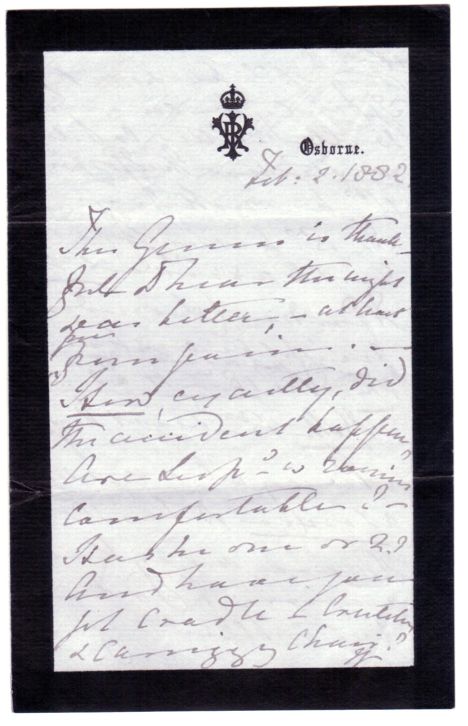 VRI
Osborne.
Feb: 2. 1882.
The Queen is thank-
ful to hear the night
was better, – at least
free
from pain. –
How, exactly, did
the accident happen?
Are Leop:ds rooms
comfortable? –
Has he one or 2?
And have you
got cradle – Crutches
& carrying Chair?